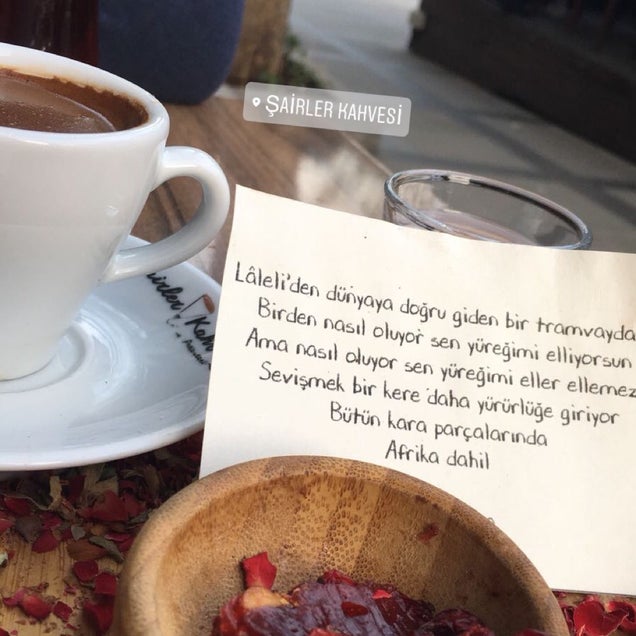 ŞAİRLER KAHVESİ
Lâleli'den dünyaya doğru giden bir tramvayda
Birden nasıl oluyor sen yüreğimi elliyorsun
Ama nasıl oluyor sen yüreğimi eller ellemez
Sevişmek bir kere daha yürürlüğe giriyor
Bütün kara parçalarında
Afrika dahil